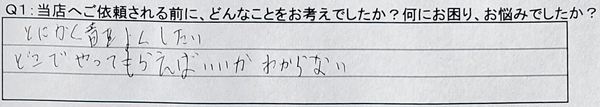 Q1:当店へご依頼される前に、どんなことをお考えでしたか？何にお困り、お悩みでしたか？
とにかく音をよくしたい
どこでやってもらえばいいか わからない